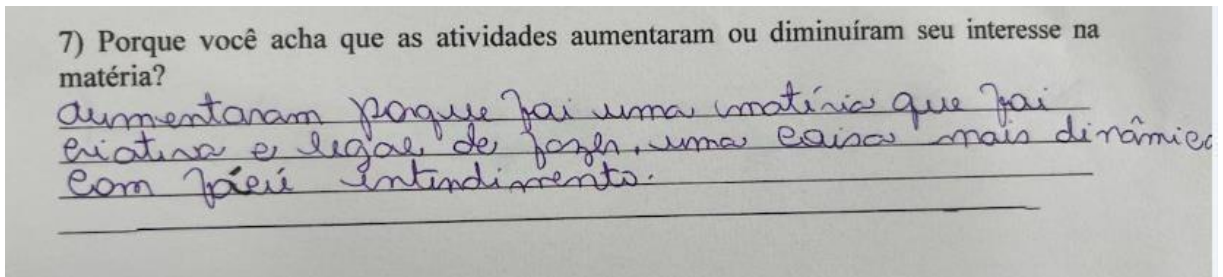 7) Porque você acha que as atividades aumentaram ou diminuíram seu interesse na
matéria?
Aumentaram porque foi uma matéria que foi
criativa e legal de fazer, uma coisa mais dinâmica
com fácil intendimento.